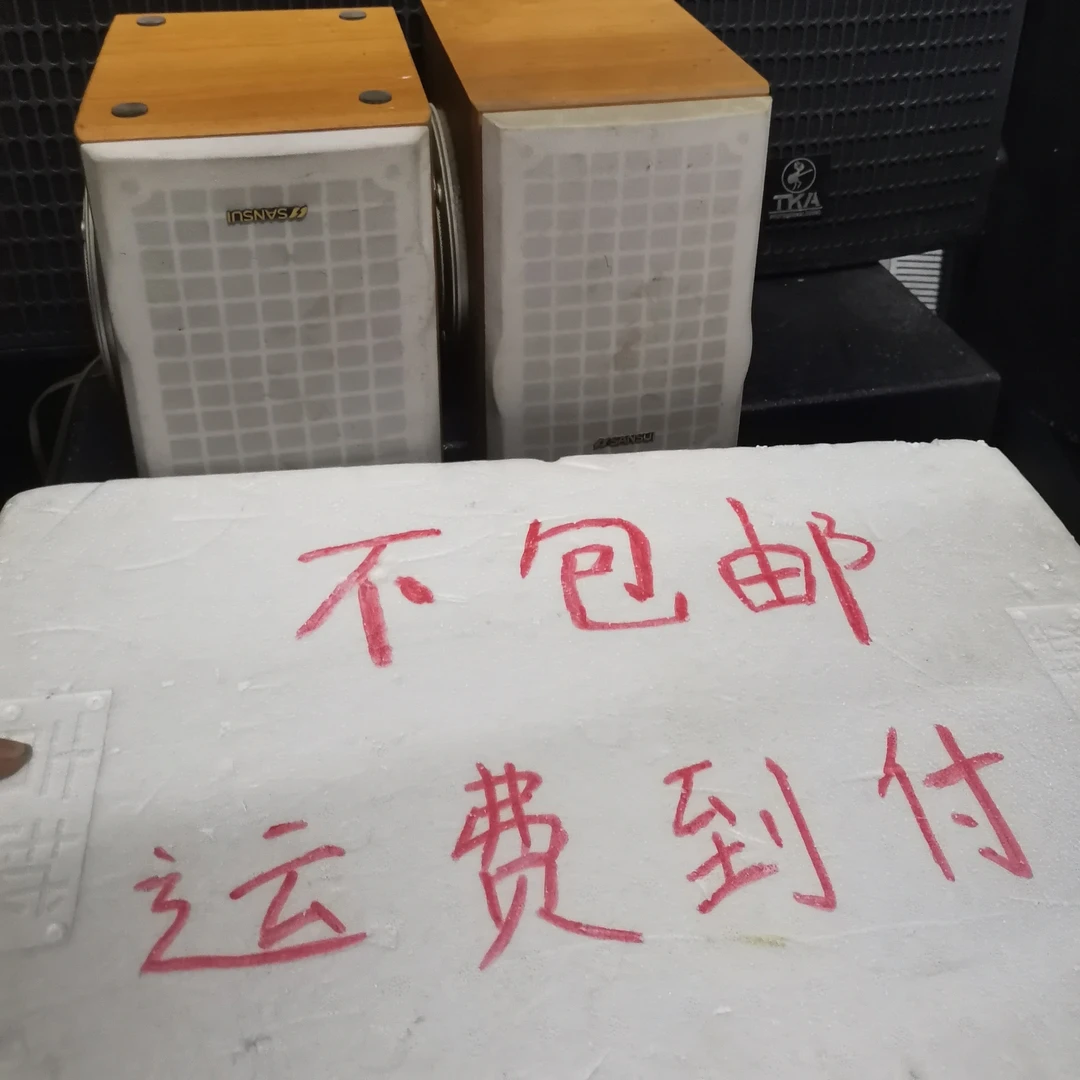 SANSUI
TKA
SANSUI
不包邮
运费到付